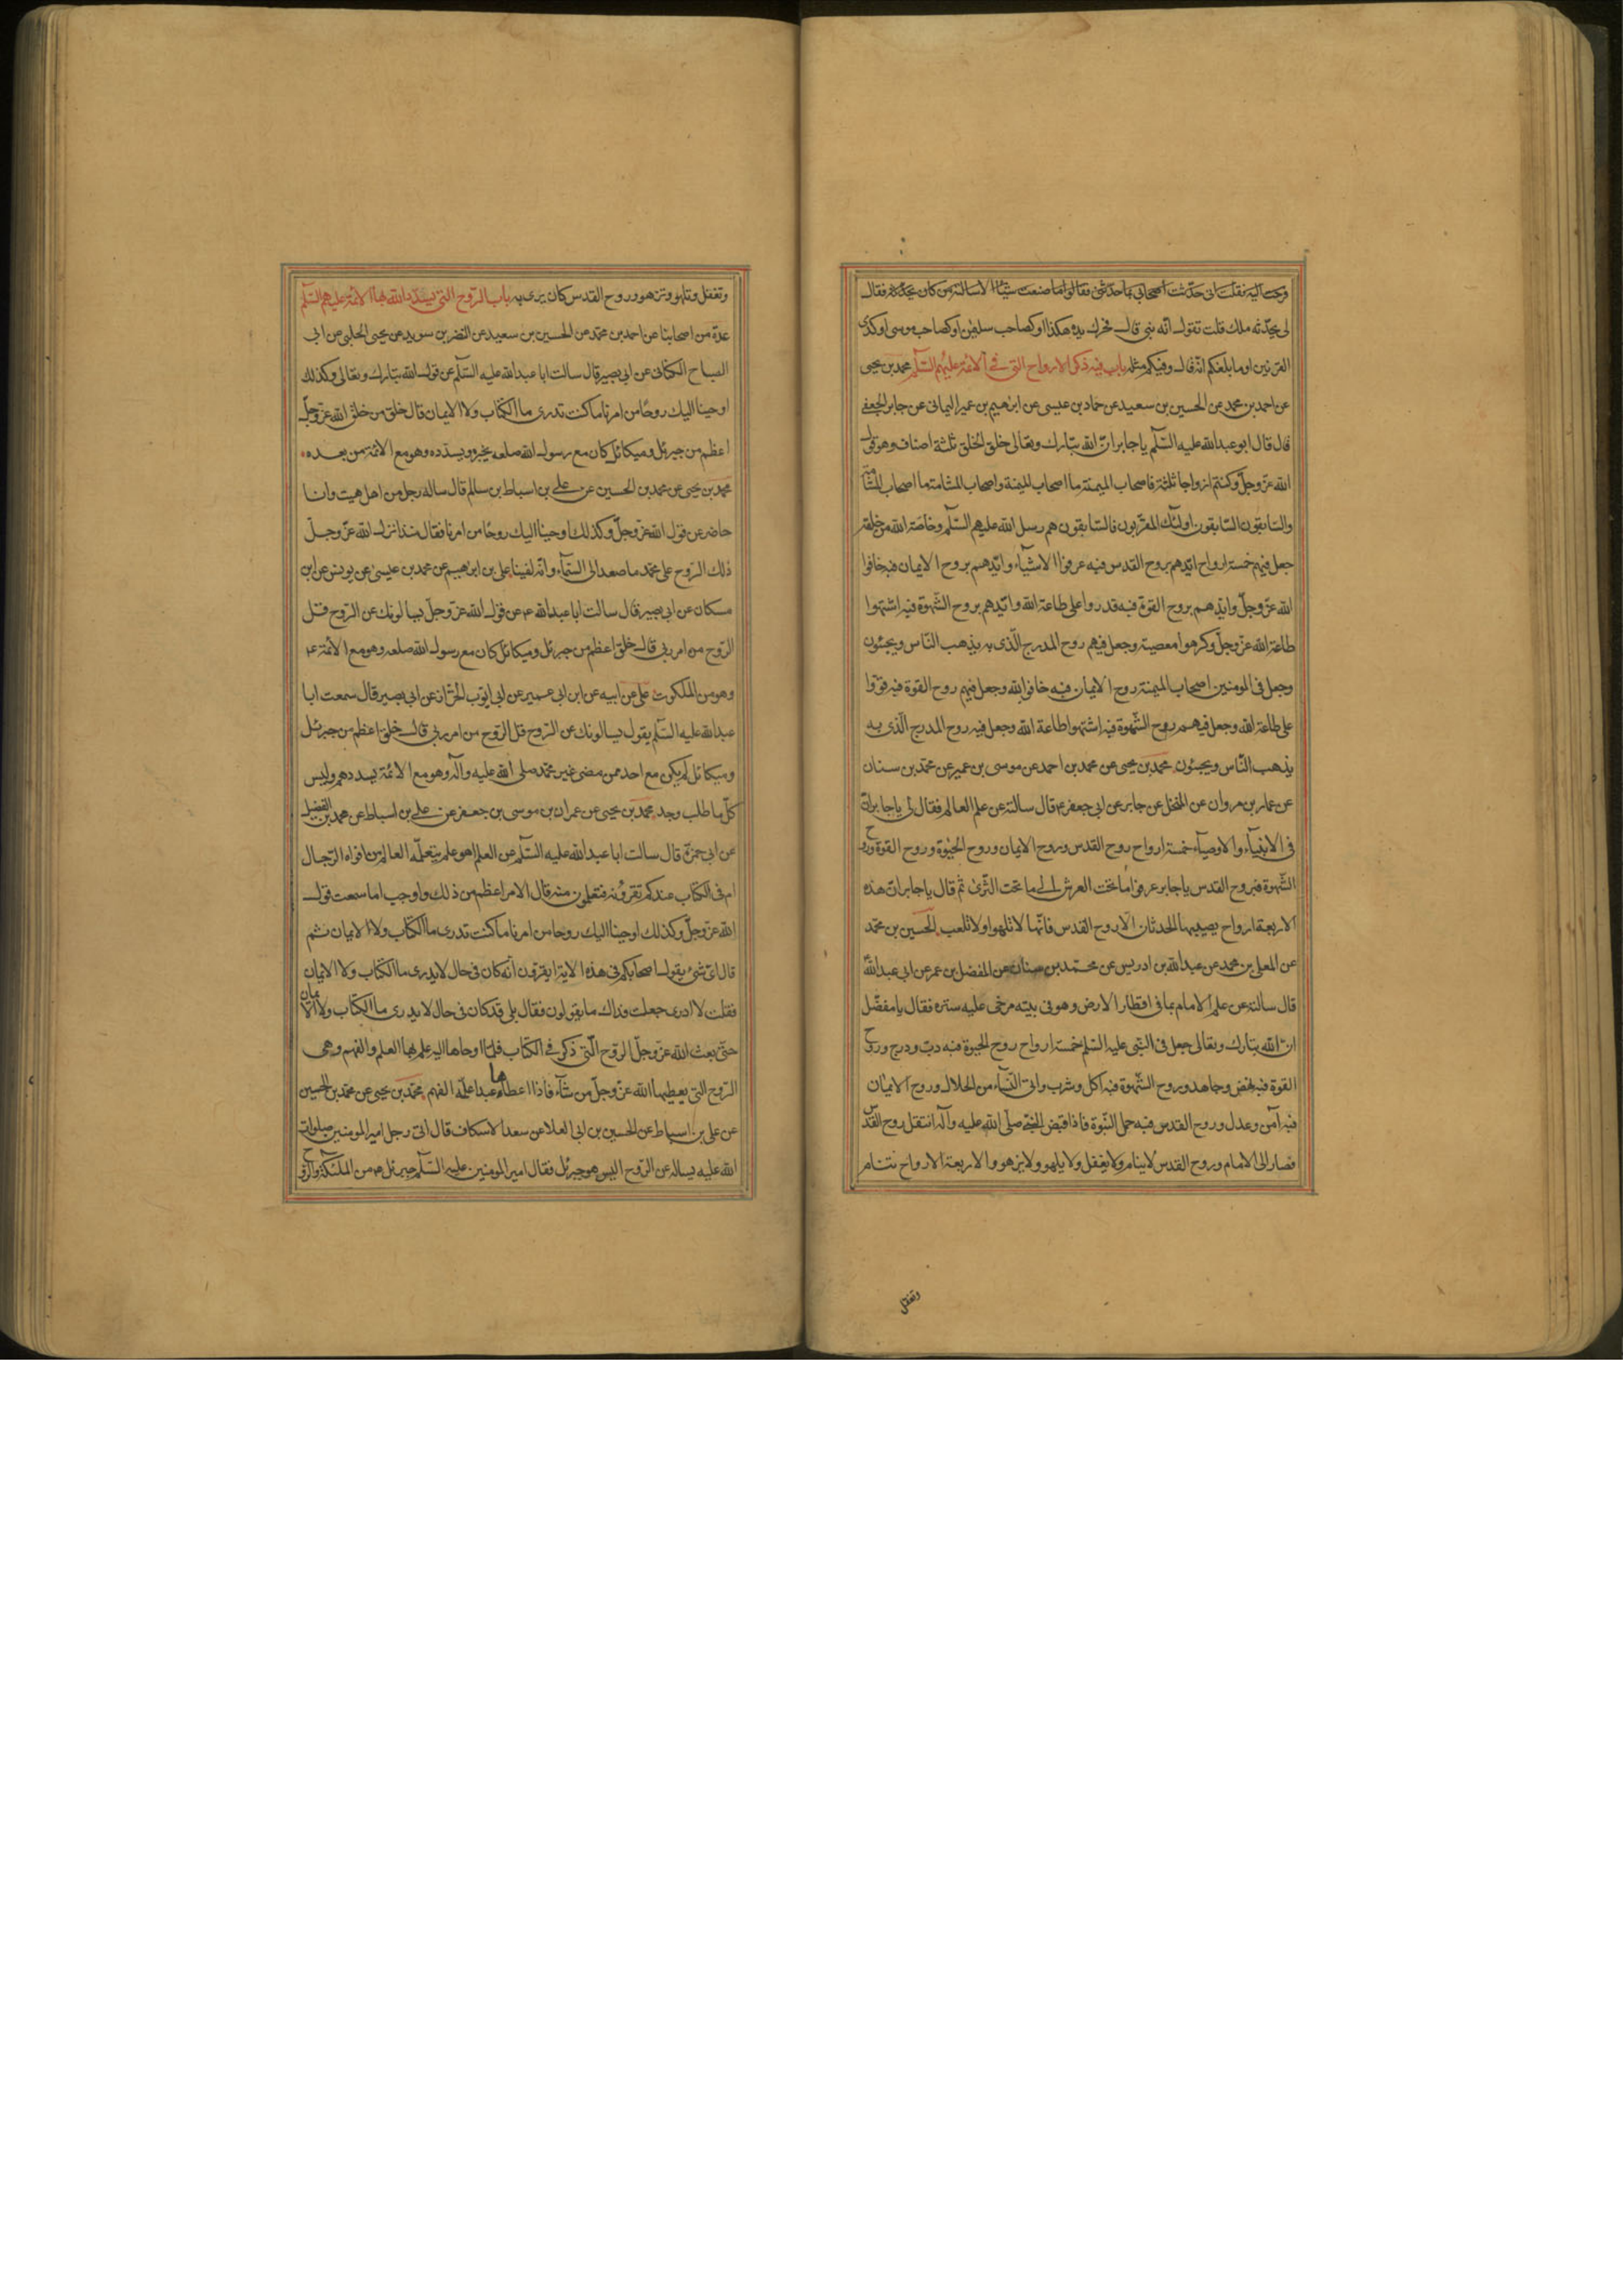 فرجعت اليه فقلت انى حدّثت اصحابى بما حدّثتنى فقالوا ما صنعت شيئا الا سالته من كان يحدّثه فقال
لى يحدّثه ملك قلت تقول انّه نبى قال فحرك يده هكذا او كصاحب سليمن او كصاحب موسى او كذى
القرنين او ما بلغكم انّه قال وفيكم مثله باب فيه ذكر الارواح التى فى الائمّة عليهم السّلم محمد بن يحيى
عن احمد بن محمد عن الحسين بن سعيد عن حماد بن عيسى عن ابرهيم بن عمر اليمانى عن جابر الجعفى
قال قال ابو عبدالله عليه السّلم يا جابر انّ الله تبارك وتعالى خلق الخلق ثلثة اصناف وهو قول
الله عزّ وجلّ وكنتم ازواجا ثلثة فاصحاب الميمنة ما اصحاب الميمنة واصحاب المشامة ما اصحاب المشامة
والسّابقون السّابقون اولئك المقرّبون فالسّابقون هم رسل الله عليهم السّلم وخاصّة الله من خلقه
جعل فيهم خمسة ارواح ايّدهم بروح القدس فبه عرفوا الاشيآء وايّدهم بروح الايمان فبه خافوا
الله عزّ وجلّ وايّدهم بروح القوّة فبه قدروا على طاعة الله وايّدهم بروح الشّهوة فبه اشتهوا
طاعة الله عزّ وجلّ وكرهوا معصيته وجعل فيهم روح المدرج الّذى به يذهب النّاس ويجيئون
وجعل فى المومنين اصحاب الميمنة روح الايمان فبه خافوا الله وجعل فيهم روح القوة فبه قوّوا
على طاعة الله وجعل فيهم روح الشّهوة فبه اشتهوا طاعة الله وجعل فيه روح المدرج الّذى به
يذهب النّاس ويجيئون محمد بن يحيى عن محمد بن احمد عن موسى بن عمير عن محمّد بن سنان
عن عمار بن مروان عن المنخل عن جابر عن ابى جعفر ع قال سالته عن علم العالم فقال لى يا جابر انّ
فى الانبيآء والاوصيآء خمسة ارواح روح القدس وروح الايمان وروح الحيوة وروح القوة وروح
الشّهوة فبروح القدس يا جابر عرفوا ما تحت العرش الى ما تحت الثّرى ثم قال يا جابر انّ هذه
الاربعة ارواح يصيبها الحدثان الّا روح القدس فانّها لا تلهو ولا تلعب الحسين بن محمّد
عن المعلى بن محمد عن عبدالله بن ادريس عن محمّد بن سنان عن المفضل بن عمر عن ابى عبدالله
قال سالته عن علم الامام بما فى اقطار الارض وهو فى بيته مرخى عليه ستره فقال يا مفضّل
انّ الله تبارك وتعالى جعل فى النّبى عليه السّلم خمسة ارواح روح الحيوة فبه دبّ ودرج وروح
القوة فبه نهض وجاهد وروح الشّهوة فبه اكل وشرب واتى النّسآء من الحلال وروح الايمان
فبه آمن وعدل وروح القدس فبه حمل النّبوة فاذا قبض النّبى صلّى الله عليه وآله انتقل روح القدس
فصار الى الامام وروح القدس لا ينام ولا يغفل ولا يلهو ولا يزهو والاربعة الارواح تنام
وتغفل
وتغفل وتلهو وتزهو وروح القدس كان يرى به باب الرّوح التى يسدّد الله بها الائمّة عليهم السّلم
عدّة من اصحابنا عن احمد بن محمّد عن الحسين بن سعيد عن النضر بن سويد عن يحيى الحلبى عن ابى
الصباح الكنانى عن ابى بصير قال سالت ابا عبدالله عليه السّلم عن قول الله تبارك وتعالى وكذلك
اوحينا اليك روحًا من امرنا ما كنت تدرى ما الكتاب ولا الايمان قال خلق من خلق الله عزّ وجلّ
اعظم من جبرئل وميكائل كان مع رسول الله صلعم يخبره ويسدّده وهو مع الائمّة من بعده
محمد بن يحيى عن محمد بن الحسين عن على بن اسباط بن سالم قال ساله رجل من اهل هيت وانا
حاضر عن قول الله عزّ وجلّ وكذلك اوحينا اليك روحًا من امرنا فقال منذ انزل الله عزّ وجلّ
ذلك الرّوح على محمّد ما صعد الى السّمآء وانّه لفينا على بن ابرهيم عن محمد بن عيسى عن يونس عن ابن
مسكان عن ابى بصير قال سالت ابا عبدالله ع عن قول الله عزّ وجلّ يسالونك عن الرّوح قل
الرّوح من امر ربى قال خلق اعظم من جبرئل وميكائل كان مع رسول الله صلعم وهو مع الائمّة ع
وهو من الملكوت على عن ابيه عن ابن ابى عمير عن ابى ايّوب الخزّاز عن ابى بصير قال سمعت ابا
عبدالله عليه السّلم يقول يسالونك عن الرّوح قل الرّوح من امر ربى قال خلق اعظم من جبرئل
وميكائل لم يكن مع احد ممن مضى غير محمّد صلى الله عليه وآله وهو مع الائمّة يسددهم وليس
كلّ ما طلب وجد محمد بن يحيى عن عمران بن موسى بن جعفر عن على بن اسباط عن محمد بن الفضيل
عن ابى حمزة قال سالت ابا عبدالله عليه السّلم عن العلم اهو علم يتعلّمه العالم من افواه الرّجال
ام فى الكتاب عندكم تقرؤنه فتعلمون منه قال الامر اعظم من ذلك واوجب اما سمعت قول
الله عزّ وجلّ وكذلك اوحينا اليك روحا من امرنا ما كنت تدرى ما الكتاب ولا الايمان ثم
قال اىّ شئ يقول اصحابكم فى هذه الاية ايقرّون انّه كان فى حال لا يدرى ما الكتاب ولا الايمان
فقلت لا ادرى جعلت فداك ما يقولون فقال بلى قد كان فى حال لا يدرى ما الكتاب ولا الايمان
حتّى بعث الله عزّ وجلّ الروح الّتى ذكر فى الكتاب فلمّا اوحاها اليه علم بها العلم والفهم وهى
الرّوح التى يعطيها الله عزّ وجلّ من شآء فاذا اعطاها عبدا علّمه الفهم محمّد بن يحيى عن محمّد بن الحسين
عن على بن اسباط عن الحسين بن ابى العلا عن سعد الاسكاف قال اتى رجل امير المومنين صلوات
الله عليه يساله عن الرّوح اليس هو جبرئل فقال امير المومنين عليه السّلم جبرئل ع من الملئكة والرّوح